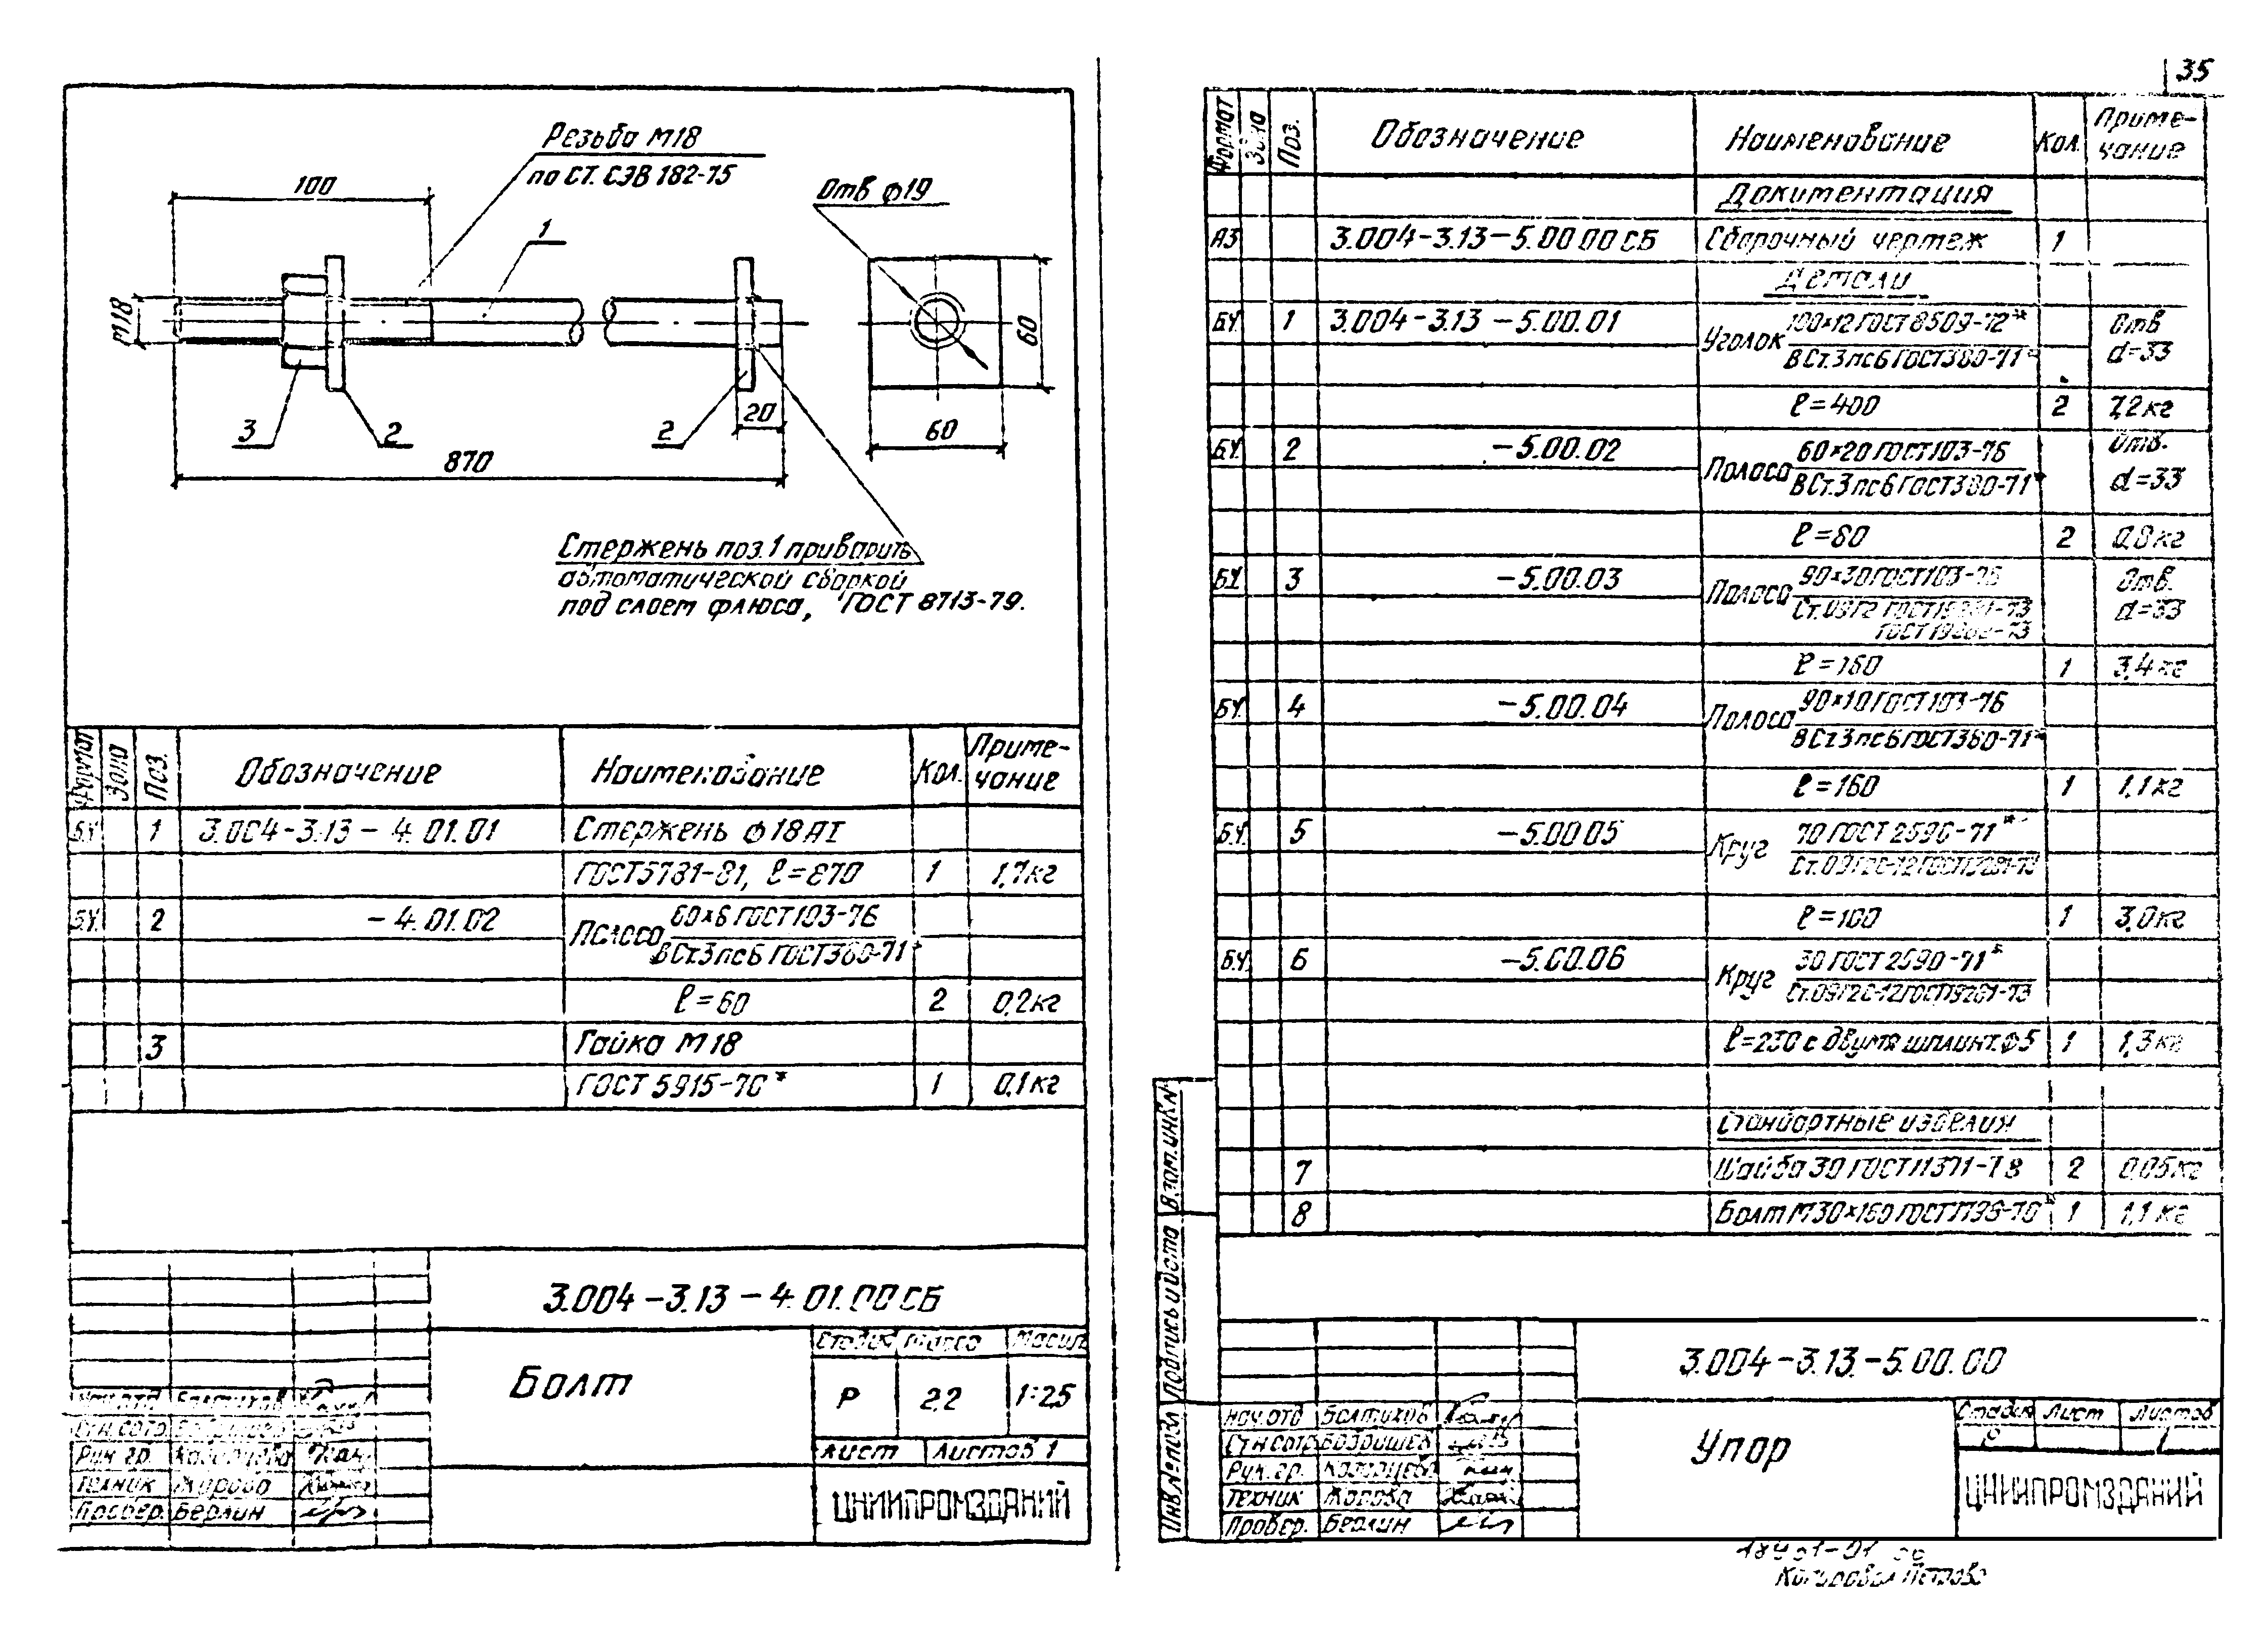 35
Резьба М18
по СТ. СЭВ 182-75
100
Отв ф19
1
М18
60
3
2
2
20
60
870
Стержень поз.1 приварить
автоматической сваркой
под слоем флюса, ГОСТ 8713-79.
Формат Зона Поз. Обозначение Наименование Кол. Приме-
чание
БЧ. 1 3.004-3.13-4.01.01 Стержень ф18АI
ГОСТ5781-81, ℓ=870 1 1,7кг
БЧ. 2 -4.01.02 Полоса 60×6 ГОСТ103-76
ВСт.3пс6 ГОСТ380-71*
ℓ=60 2 0,2кг
3 Гайка М18
ГОСТ 5915-70* 1 0,1кг
3.004-3.13-4.01.00СБ
Болт
Стадия Масса Масшт
Р 2,2 1:2,5
Лист Листов 1
ЦНИИПРОМЗДАНИЙ
Рук. гр.
Техник Жарова
Провер. Берлин
Формат Зона Поз. Обозначение Наименование Кол. Приме-
чание
Документация
А3 3.004-3.13-5.00 00 СБ Сборочный чертеж 1
Детали
БЧ. 1 3.004-3.13-5.00.01 Уголок 100×12 ГОСТ 8509-72* Отв
ВСт.3пс6 ГОСТ380-71* d=33
ℓ=400 2 7,2кг
БЧ. 2 -5.00.02 Полоса 60×20 ГОСТ103-76 Отв.
ВСт.3пс6 ГОСТ380-71* d=33
ℓ=80 2 0,8кг
БЧ. 3 -5.00.03 Полоса 90×30 ГОСТ103-76 Отв.
Ст.09Г2 d=33
ℓ=160 1 3,4кг
БЧ. 4 -5.00.04 Полоса 90×10 ГОСТ103-76
ВСт3пс6 ГОСТ380-71*
ℓ=160 1 1,1кг
БЧ. 5 -5.00 05 Круг 70 ГОСТ 2590-71*
Ст.09Г2С-12 ГОСТ19281-73
ℓ=100 1 3,0кг
БЧ. 6 -5.00.06 Круг 30 ГОСТ 2590-71*
Ст.09Г2С-12 ГОСТ19281-73
ℓ=230 с двумя шплинт. ф5 1 1,3кг
Стандартные изделия
7 Шайба 30 ГОСТ11371-78 2 0,05кг
8 Болт М30×160 1 1,1кг
Взам.инв.№
Подпись и дата
Инв.№подл
3.004-3.13-5.00.00
Упор
Стадия Лист Листов
Р 1
ЦНИИПРОМЗДАНИЙ
Нач.отд
Рук. гр.
Техник Жарова
Провер. Берлин
Копировал Петрова